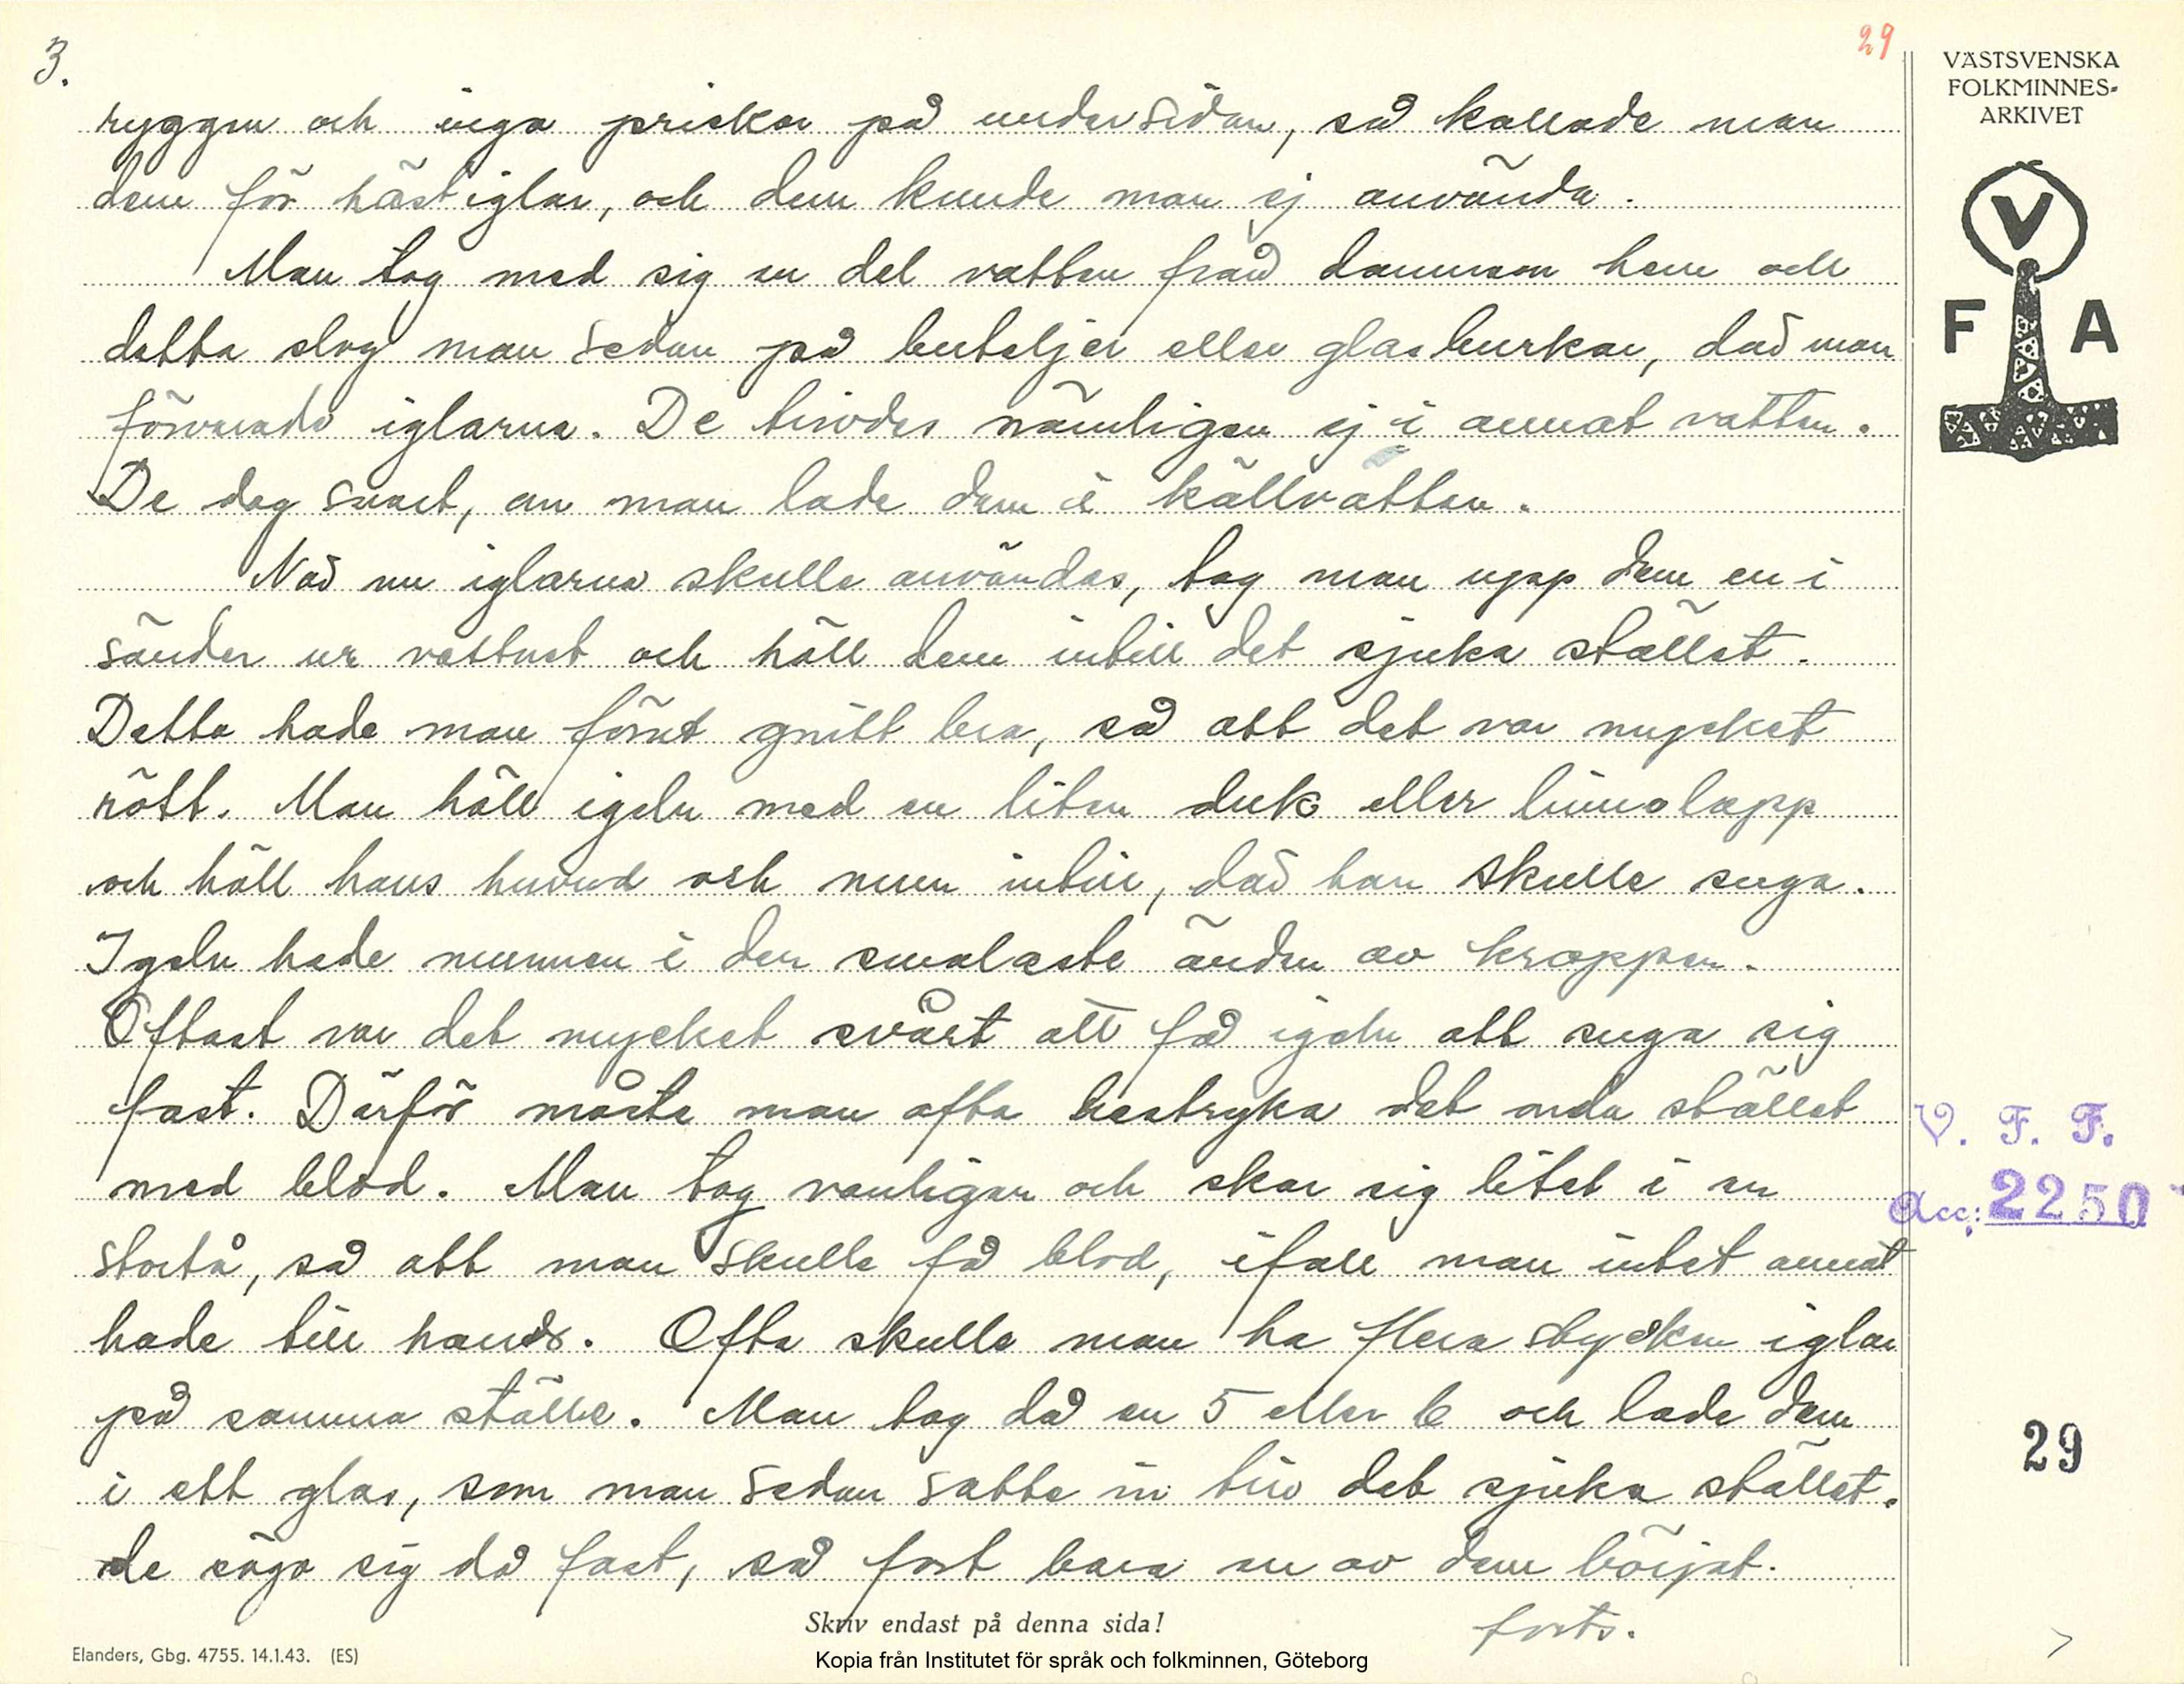 3.
29
ryggen och inga prickar på undersidan, så kallade man
dem för hästiglar, och dem kunde man ej använda.
Man tog med sig en del vatten från dammen hem och
detta slog man sedan på buteljer eller glasburkar, där man
förvarade iglarna. De trivdes nämligen ej i annat vatten.
De dog snart, om man lade dem i källvatten.
När nu iglarna skulle användas, tog man upp dem en i
sänder ur vattnet och höll dem intill det sjuka stället.
Detta hade man förut gnitt bra, så att det var mycket
rött. Man höll igeln med en liten duk eller linnelapp
och höll hans huvud och mun intill, där han skulle suga.
Igeln hade munnen i den smalaste änden av kroppen.
Oftast var det mycket svårt att få igeln att suga sig
fast. Därför måste man ofta bestryka det onda stället
med blod. Man tog vanligen och skar sig litet i en
stortå, så att man skulle få blod, ifall man intet annat
hade till hands. Ofta skulle man ha flera stycken iglar
på samma ställe. Man tog då en 5 eller 6 och lade dem
i ett glas, som man sedan satte in till det sjuka stället.
de sögo sig då fast, så fort bara en av dem börjat.
forts.
Skriv endast på denna sida!
Elanders, Gbg. 4755. 14.1.43. (ES)
Kopia från Institutet för språk och folkminnen, Göteborg
VÄSTSVENSKA
FOLKMINNES-
ARKIVET
V
F A
V. F. F.
Acc: 2250
29